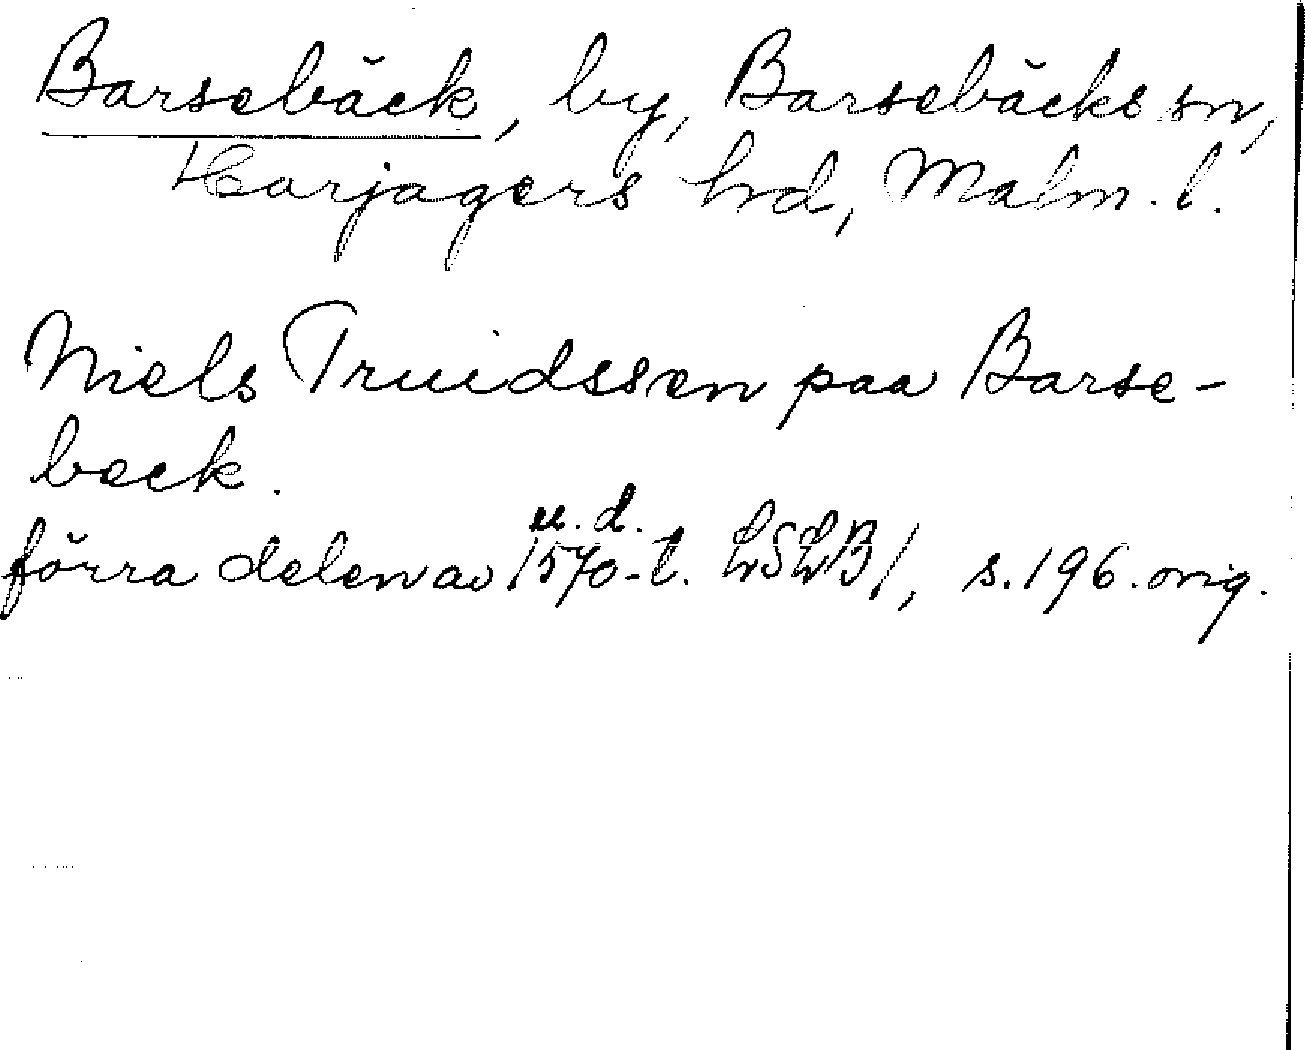 Barsebäck, by, Barsebäcks sn,
Harjagers hd, Malm. l.
Niels Truidssen paa Barse-
beck.
u. d.
förra delen av 1570-t. LSLB1, s. 196. orig.